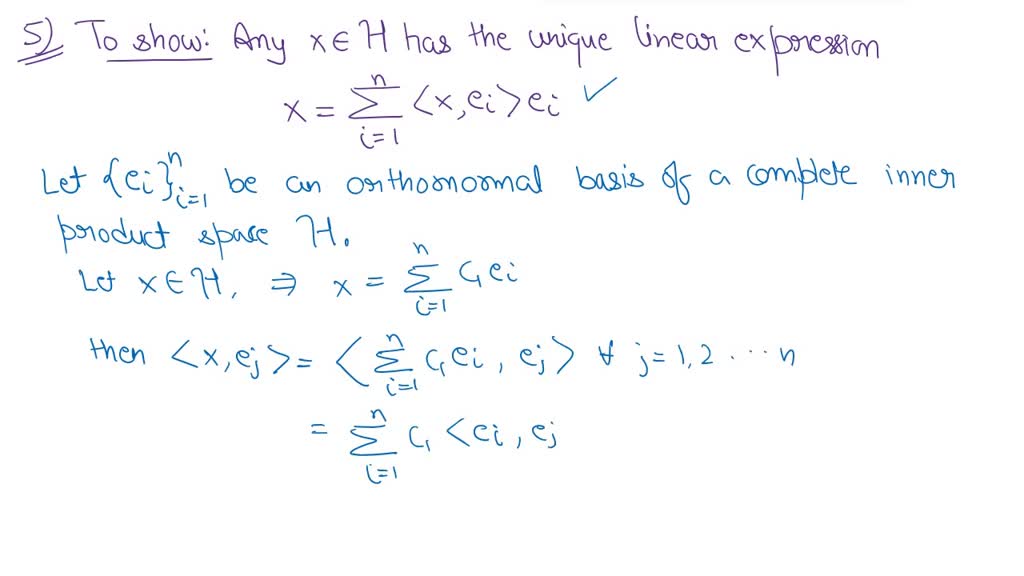 5) To show: Any x ∈ H has the unique linear expression
x = ∑_{i=1}^{n} <x, ei> ei ✓
Let {ei}_{i=1}^{n} be an orthornormal basis of a complete inner
product space H.
Let x ∈ H, ⇒ x = ∑_{i=1}^{n} ci ei
then <x, ej> = <∑_{i=1}^{n} ci ei, ej> ∀ j = 1, 2 ... n
= ∑_{i=1}^{n} ci <ei, ej